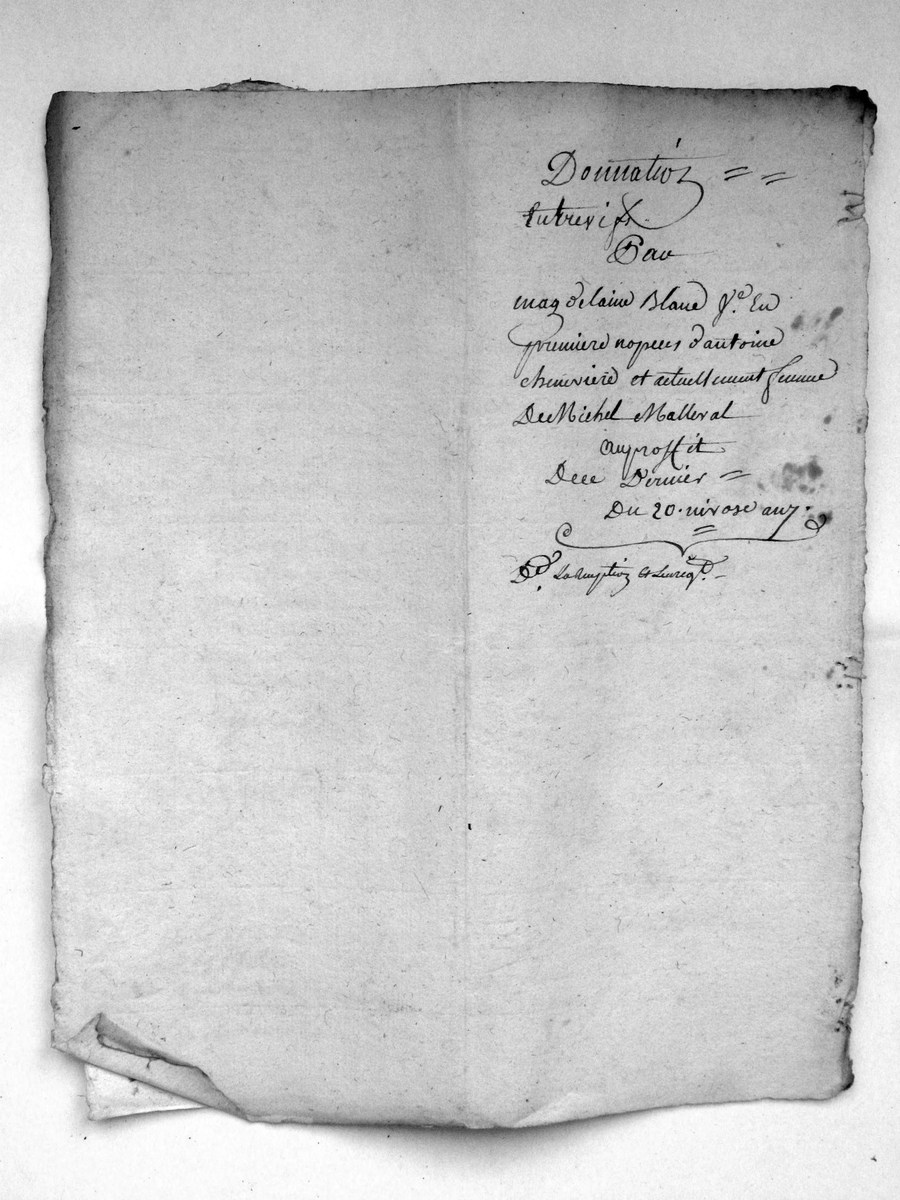 Donnation = =
Entrevifs.
Par
magdelaine Blanc Vᵉ. En
premiere nopces d'antoine
cheneviere et actuellement femme
De Michel Malleval
au proffit
De ce Dernier =
Du 20. nivose an 7.